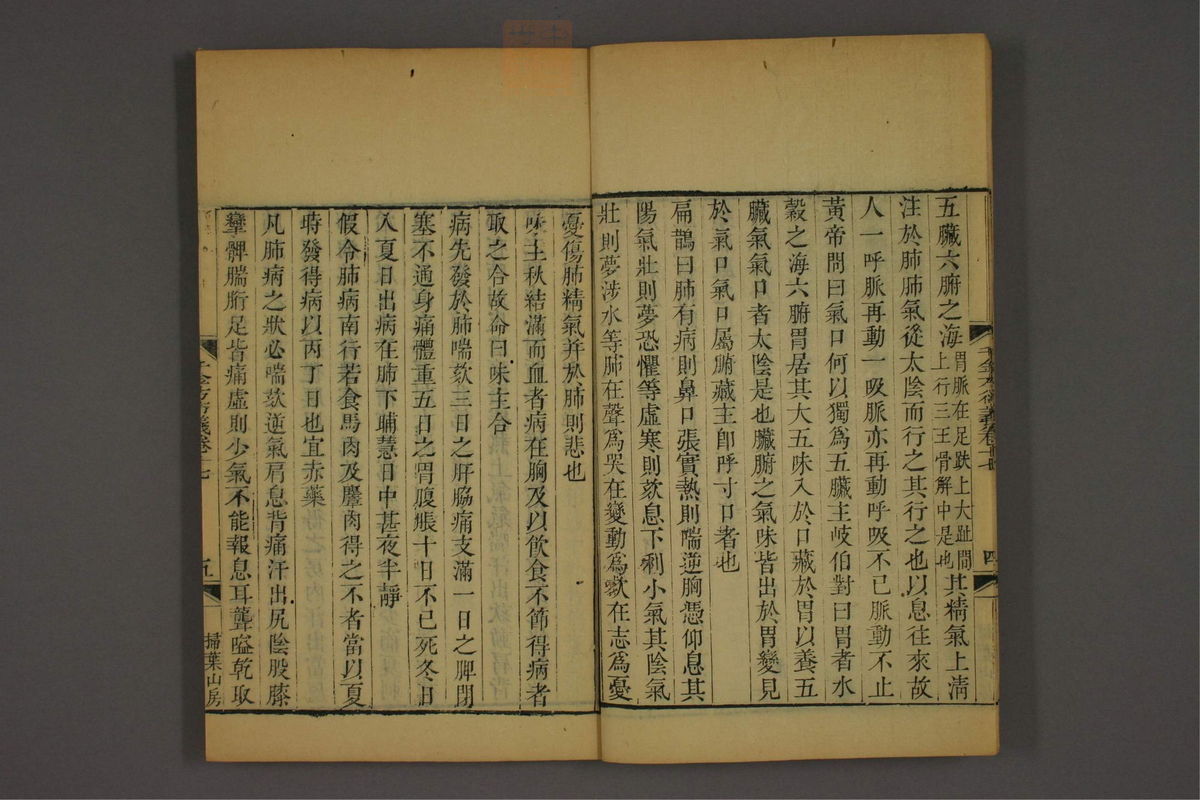 五臟六腑之海胃脈在足趺上大趾間上行三王骨解中是也其精氣上淸
注於肺肺氣從太陰而行之其行之也以息往來故
人一呼脈再動一吸脈亦再動呼吸不已脈動不止
黃帝問曰氣口何以獨爲五臟主岐伯對曰胃者水
穀之海六腑胃居其大五味入於口藏於胃以養五
臟氣氣口者太陰是也臟腑之氣味皆出於胃變見
於氣口氣口屬腑藏主卽呼寸口者也
扁鵲曰肺有病則鼻口張實熱則喘逆胸憑仰息其
陽氣壯則夢恐懼等虛寒則欬息下利小氣其陰氣
壯則夢涉水等肺在聲爲哭在變動爲欬在志爲憂
憂傷肺精氣并於肺則悲也
味主秋結滿而血者病在胸及以飮食不節得病者
取之合故命曰味主合
病先發於肺喘欬三日之肝脇痛支滿一日之脾閉
塞不通身痛體重五日之胃腹脹十日不已死冬日
入夏日出病在肺下晡慧日中甚夜半靜
假令肺病南行若食馬肉及麞肉得之不者當以夏
時發得病以丙丁日也宜赤藥
凡肺病之狀必喘欬逆氣肩息背痛汗出尻陰股膝
攣髀腨胻足皆痛虛則少氣不能報息耳聾嗌乾取
五
掃葉山房
四